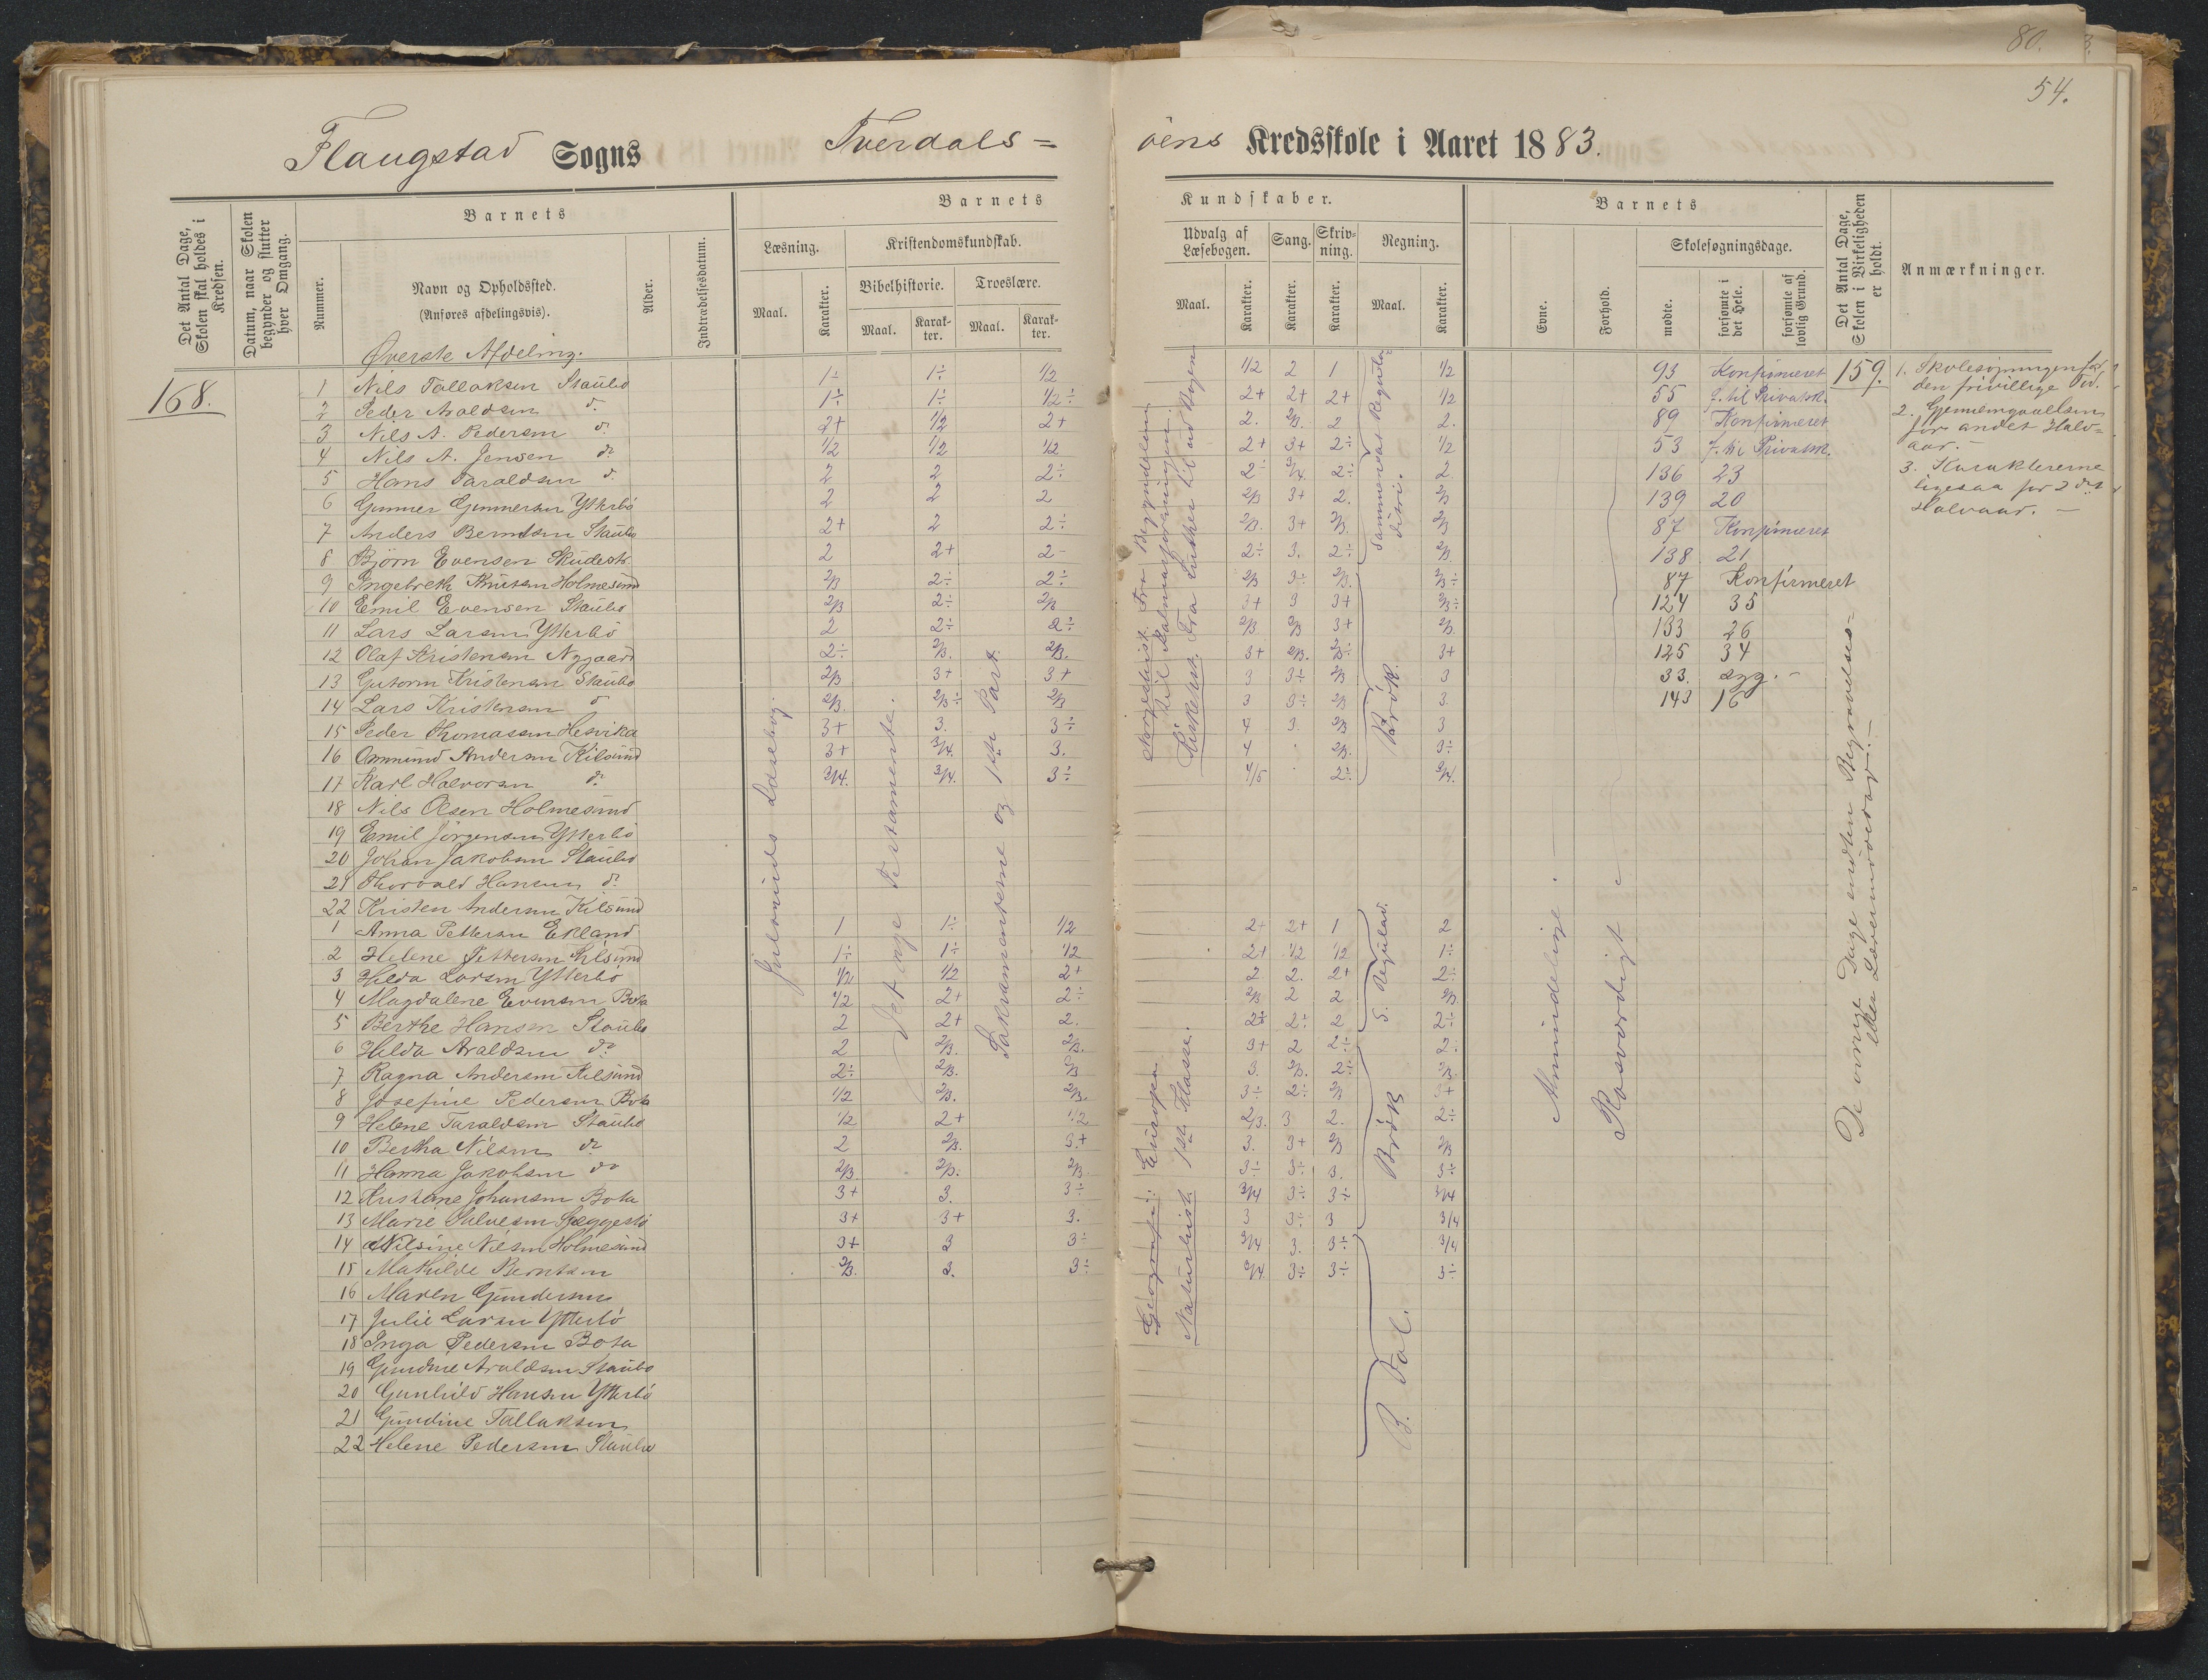 80.
54.
Flaugstad Sogns Tverdals=
öens Kredsskole i Aaret 1883.
Det Antal Dage, Skolen skal holdes i Kredsen.
Datum, naar Skolen begynder og slutter hver Omgang.
Barnets
Nummer.
Navn og Opholdssted.
(Anføres afdelingsvis).
Alder.
Indtrædelsesdatum.
Barnets
Læsning.
Maal.
Karakter.
Kristendomskundskab.
Bibelhistorie.
Maal.
Karakter.
Troeslære.
Maal.
Karakter.
Kundskaber.
Udvalg af Læsebogen.
Maal.
Karakter.
Sang.
Karakter.
Skrivning.
Karakter.
Regning.
Maal.
Karakter.
Barnets
Evne.
Forhold.
Skolesøgningsdage.
mødte.
forsømte i det Hele.
forsømte af lovlig Grund.
Det Antal Dage, Skolen i Virkeligheden er holdt.
Anmærkninger.
Øverste Afdeling.
168.
1 Nils Tallaksen Staubo 1÷ 1÷ 1/2 1/2 2 1 1/2 93 Konfirmeret 159.
2 Peder Araldsen do 1÷ 1÷ 1/2÷ 2+ 2+ 2+ 1/2 55 f. til Privatsk.
3 Nils A. Pedersen do 2+ 1/2 2+ 2. 2/3. 2 2. 89 Konfirmeret
4 Nils A. Jensen do 1/2 1/2 1/2 2+ 3+ 2÷ 1/2 53 f. til Privatsk.
5 Hans Taraldsen do 2 2 2÷ 2÷ 3/4. 2÷ 2 136 23
6 Gunner Gunnersen Ytterbö 2 2 2 2/3 3+ 2. 2/3 139 20
7 Anders Berntsen Staubo 2+ 2 2÷ 2/3. 3+ 2/3. 2/3 87 Konfirmeret
8 Björn Evensen Skudestr. 2 2+ 2- 2÷ 3. 2÷ 2/3 138 21
9 Ingebreth Knutsen Holmesund 2/3 2÷ 2÷ 2/3 3÷ 2/3. 2/3÷ 87 Konfirmeret
10 Emil Evensen Staubo 2/3 2÷ 2/3 3+ 3 3+ 2/3÷ 124 35
11 Lars Larsen Ytterbö 2 2÷ 2÷ 2/3 2/3 3+ 2/3. 133 26
12 Olaf Kristensen Nygaard 2÷ 2/3. 2/3. 3+ 2/3. 2/3÷ 3+ 125 34
13 Gutorm Kristensen Staubo 2/3 3+ 3+ 3 3+ 2/3 3 33. syg.-
14 Lars Kristensen do 2/3. 2/3÷ 2/3 3 3÷ 2/3 3. 143 16
15 Peder Thomassen Hesvika 3+ 3. 3÷ 4 3. 2/3 3
16 Ommund Andersen Kilsund 3+ 3/4. 3. 4 2/3. 3÷
17 Karl Halvorsen do 3/4. 3/4. 3÷ 4/5 2÷ 3/4.
18 Nils Olsen Holmesund
19 Emil Jörgensen Ytterbö
20 Johan Jakobsen Staubo
21 Thorvald Hansen do
22 Kristen Andersen Kilsund
1 Anna Pettersen Ekland 1 1÷ 1/2 2+ 2+ 1 2
2 Helene Pettersen Kilsund 1÷ 1÷ 1/2 2+ 1/2 1/2 1÷
3 Hilda Larsen Ytterbö 1/2 1/2 2+ 2 2. 2+ 2÷
4 Magdalene Evensen Bota 1/2 2+ 2÷ 2/3 2 2 2/3
5 Berthe Hansen Staubo 2 2+ 2. 2÷ 2÷ 2 2÷
6 Hilda Araldsen do 2 2/3. 2/3. 3+ 2 2÷ 2÷
7 Ragna Andersen Kilsund 2÷ 2/3. 2/3 3. 2/3. 2÷ 2/3
8 Josefine Pedersen Bota 1/2 2/3. 2/3. 3÷ 2÷ 2/3 3+
9 Helene Taraldsen Staubo 1/2 2+ 1/2 2/3. 3 2. 2÷
10 Bertha Nilsen do 2 2/3. 3+ 3. 3+ 2/3 2/3
11 Hanna Jakobsen do 2/3 2/3. 2/3. 3÷ 3÷ 3. 3÷
12 Kristiane Johansen Bota 3+ 3. 3÷ 3/4 3÷ 3÷ 3/4
13 Marie Salvesen Skeggestö 3+ 3+ 3. 3 3÷ 3 3/4
14 Nilsine Nilsen Holmesund 3+ 3 3÷ 3/4 3. 3÷ 3/4
15 Mathilde Berntsen 2/3. 3. 3÷ 3/4 3÷ 3÷ 3÷
16 Maren Gundersen
17 Julie Larsen Ytterbö
18 Inga Pedersen Bota
19 Gundine Araldsen Staubo
20 Gunhild Hansen Ytterbö
21 Gundine Tallaksen
22 Helene Pedersen Staubo
Jensenius Læsebog.
Det nye Testamente.
Sakramenterne og 1ste Part.
Norgeshist. Fra Begyndelsen til Kalmarforeningen.
Kirkehist. Fra Luther til ud Bogen
Geografi: Europa.
Naturhist. 1ste Klasse.
Sammensat Reguladetri.
Brök.
S. Regulad.
Brök
B. Tal.
Almindelige.
Rosværdigt
De övrige Dage endten Begravelses= eller Lærermödedag.-
1. Skolesögningen for den frivillige Tid.
2. Gjennemgaaelsen for andet Halv=
aar.-
3. Karaktererne
ligesaa for 2det
Halvaar.-